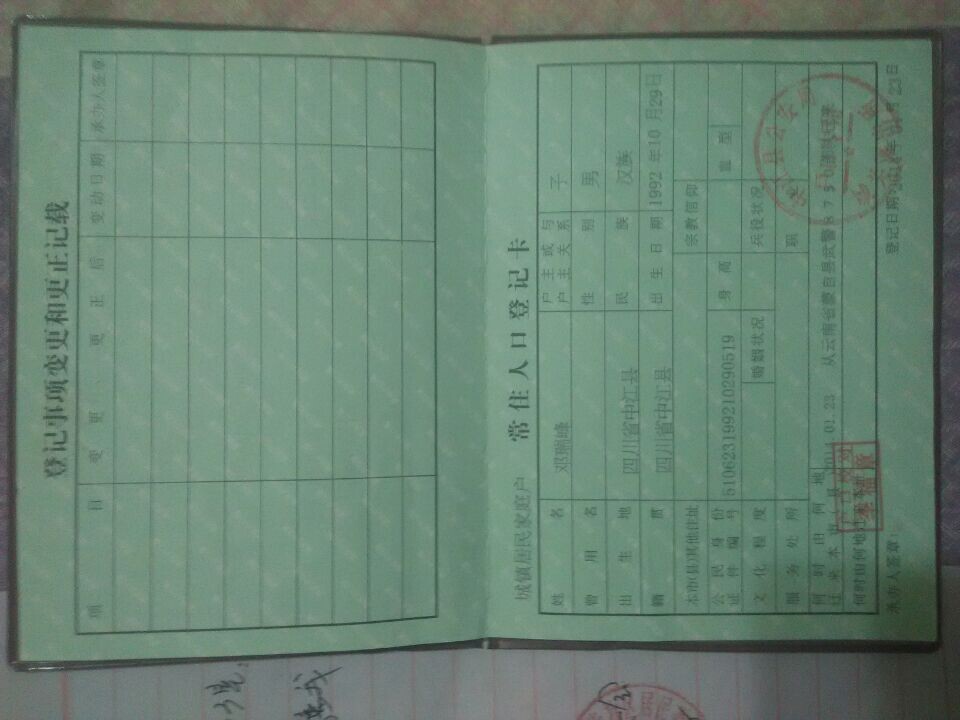 登记事项变更和更正记载
项 目 变 更 、 更 正 后 变动日期 承办人签章
城镇居民家庭户 常住人口登记卡
姓 名 邓瑞峰 户主或与户主关系 子
曾 用 名 性 别 男
出 生 地 四川省中江县 民 族 汉族
籍 贯 四川省中江县 出 生 日 期 1992年10月29日
本市(县)其他住址 宗教信仰
公民身份证件编号 510623199210290519 身 高 血 型
文 化 程 度 婚姻状况 兵役状况
服 务 处 所 职 业
何时由何地迁来本市(县) 01.23 从云南省蒙自县武警
何时由何地迁来本址
承办人签章: 登记日期: 月23日